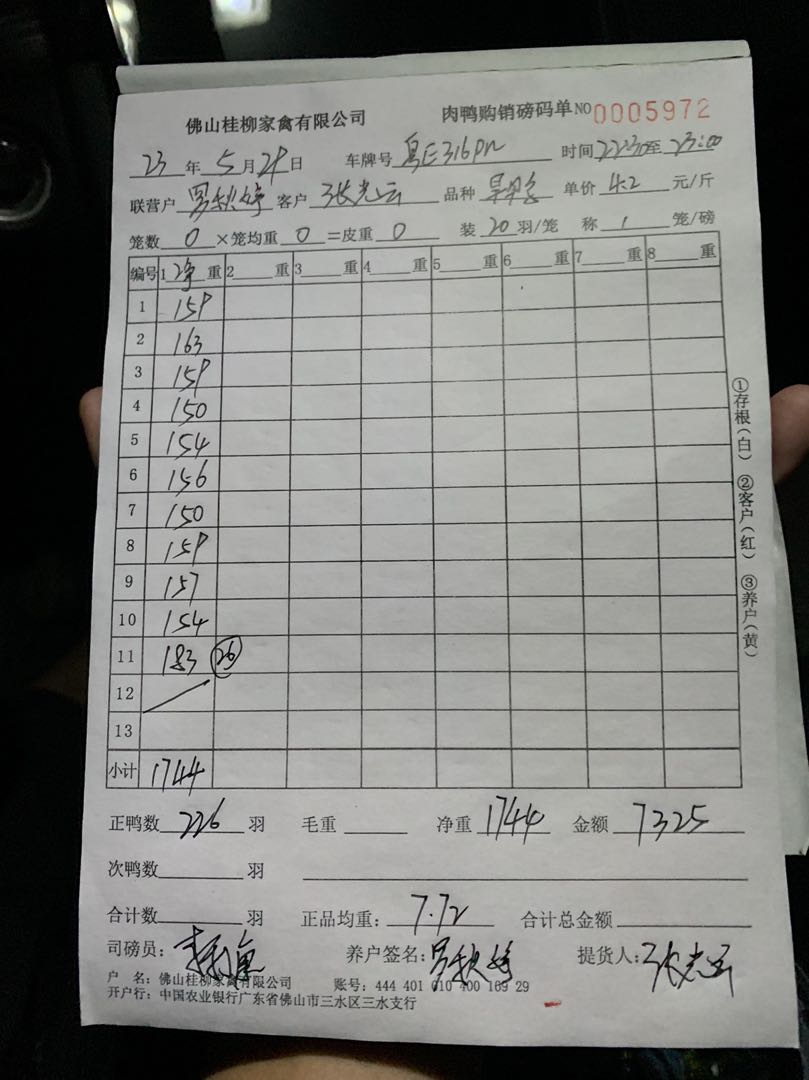 佛山桂柳家禽有限公司 肉鸭购销磅码单 NO 0005972
23 年 5 月 29 日 车牌号 粤E316 时间 22:30 至 23:00
联营户 罗秋婷 客户 张志云 品种 单价 4.2 元/斤
笼数 0 ×笼均重 0 =皮重 0 装 20 羽/笼 称 1 笼/磅
编号 1 净 重 2 重 3 重 4 重 5 重 6 重 7 重 8 重
1 159
2 163
3 159
4 150
5 154
6 156
7 150
8 159
9 157
10 154
11 183 26
12
13
小计 1744
正鸭数 226 羽 毛重 净重 1744 金额 7325
次鸭数 羽
合计数 羽 正品均重: 7.72 合计总金额
司磅员: 养户签名: 罗秋婷 提货人: 张志云
户 名: 佛山桂柳家禽有限公司 账号: 444 401 010 400 169 29
开户行: 中国农业银行广东省佛山市三水区三水支行
①存根(白) ②客户(红) ③养户(黄)